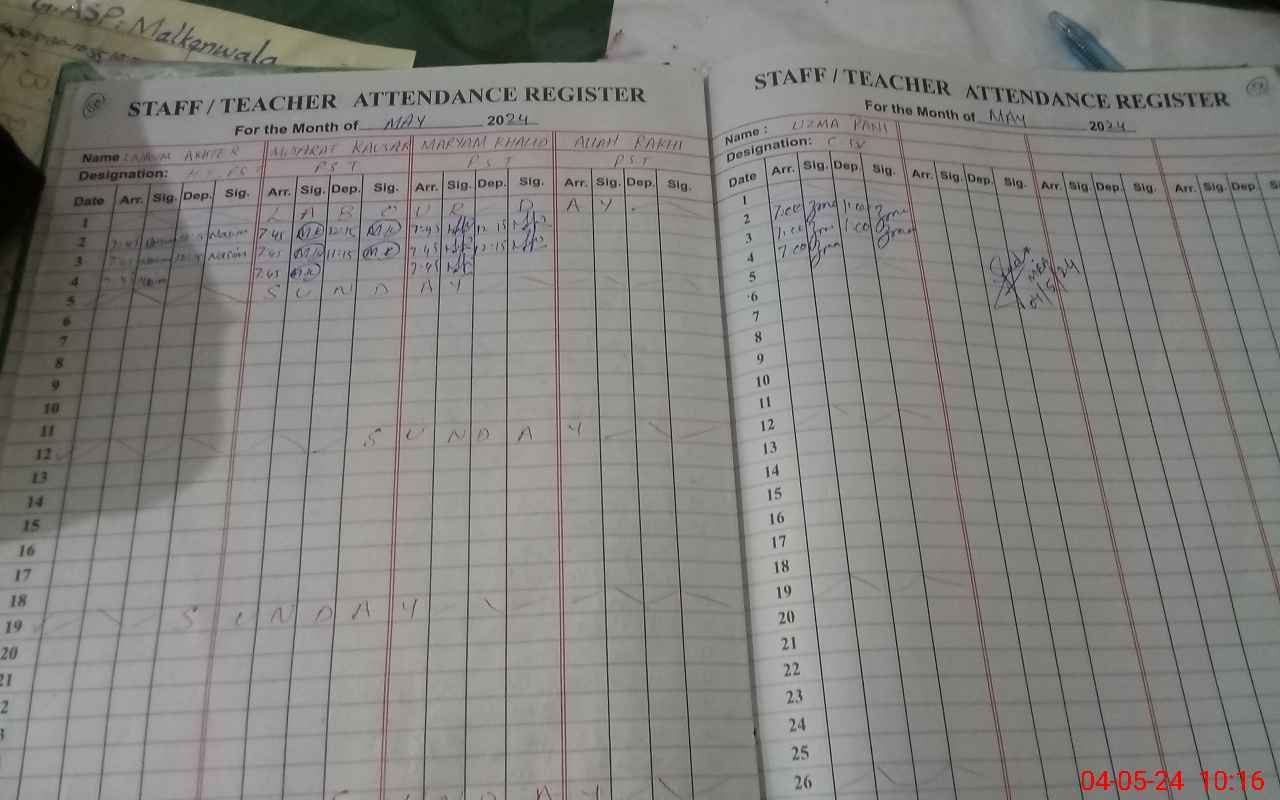 G.ASP: Malkanwala
STAFF / TEACHER ATTENDANCE REGISTER
For the Month of MAY 2024
Name : AKHTER MUSARAT KAUSAR MARYAM KHALID ALLAH RAKHI
Designation: PST PST PST
Date Arr. Sig. Dep. Sig. Arr. Sig. Dep. Sig. Arr. Sig. Dep. Sig. Arr. Sig. Dep. Sig.
1 L A B O U R D A Y
2 Nasim 7.45 MK 12:15 MK 7:45 12:15
3 Nasim 7.45 MK 11:15 MK 7.45 12:15
4 7.45 MK 7.45
5 S U N D A Y
6
7
8
9
10
11
12 S U N D A Y
13
14
15
16
17
18
19 S U N D A Y
20
21
2
3
S U N D A Y
STAFF / TEACHER ATTENDANCE REGISTER
For the Month of MAY 2024
Name : UZMA
Designation:
Date Arr. Sig. Dep. Sig. Arr. Sig. Dep. Sig. Arr. Sig. Dep. Sig. Arr. Sig. Dep. S
1
2 7:00 1:00
3 7:00 1:00
4 7:00
5
6
7
8
9
10
11
12
13
14
15
16
17
18
19
20
21
22
23
24
25
26
MEA
04/5/24
04-05-24 10:16